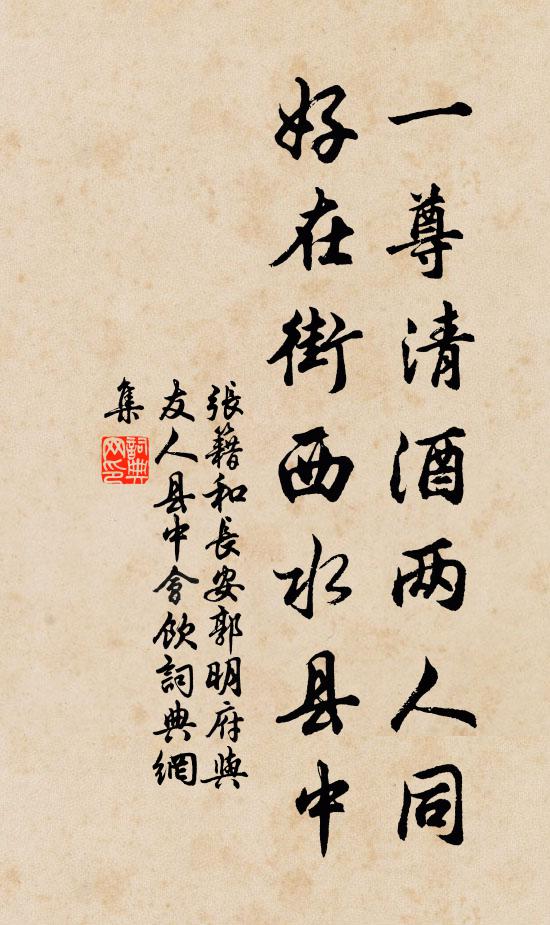 一尊清酒两人同
好在街西水县中
張籍和長安郭明府與
友人县中會飲詞典網
集
詞典
网印